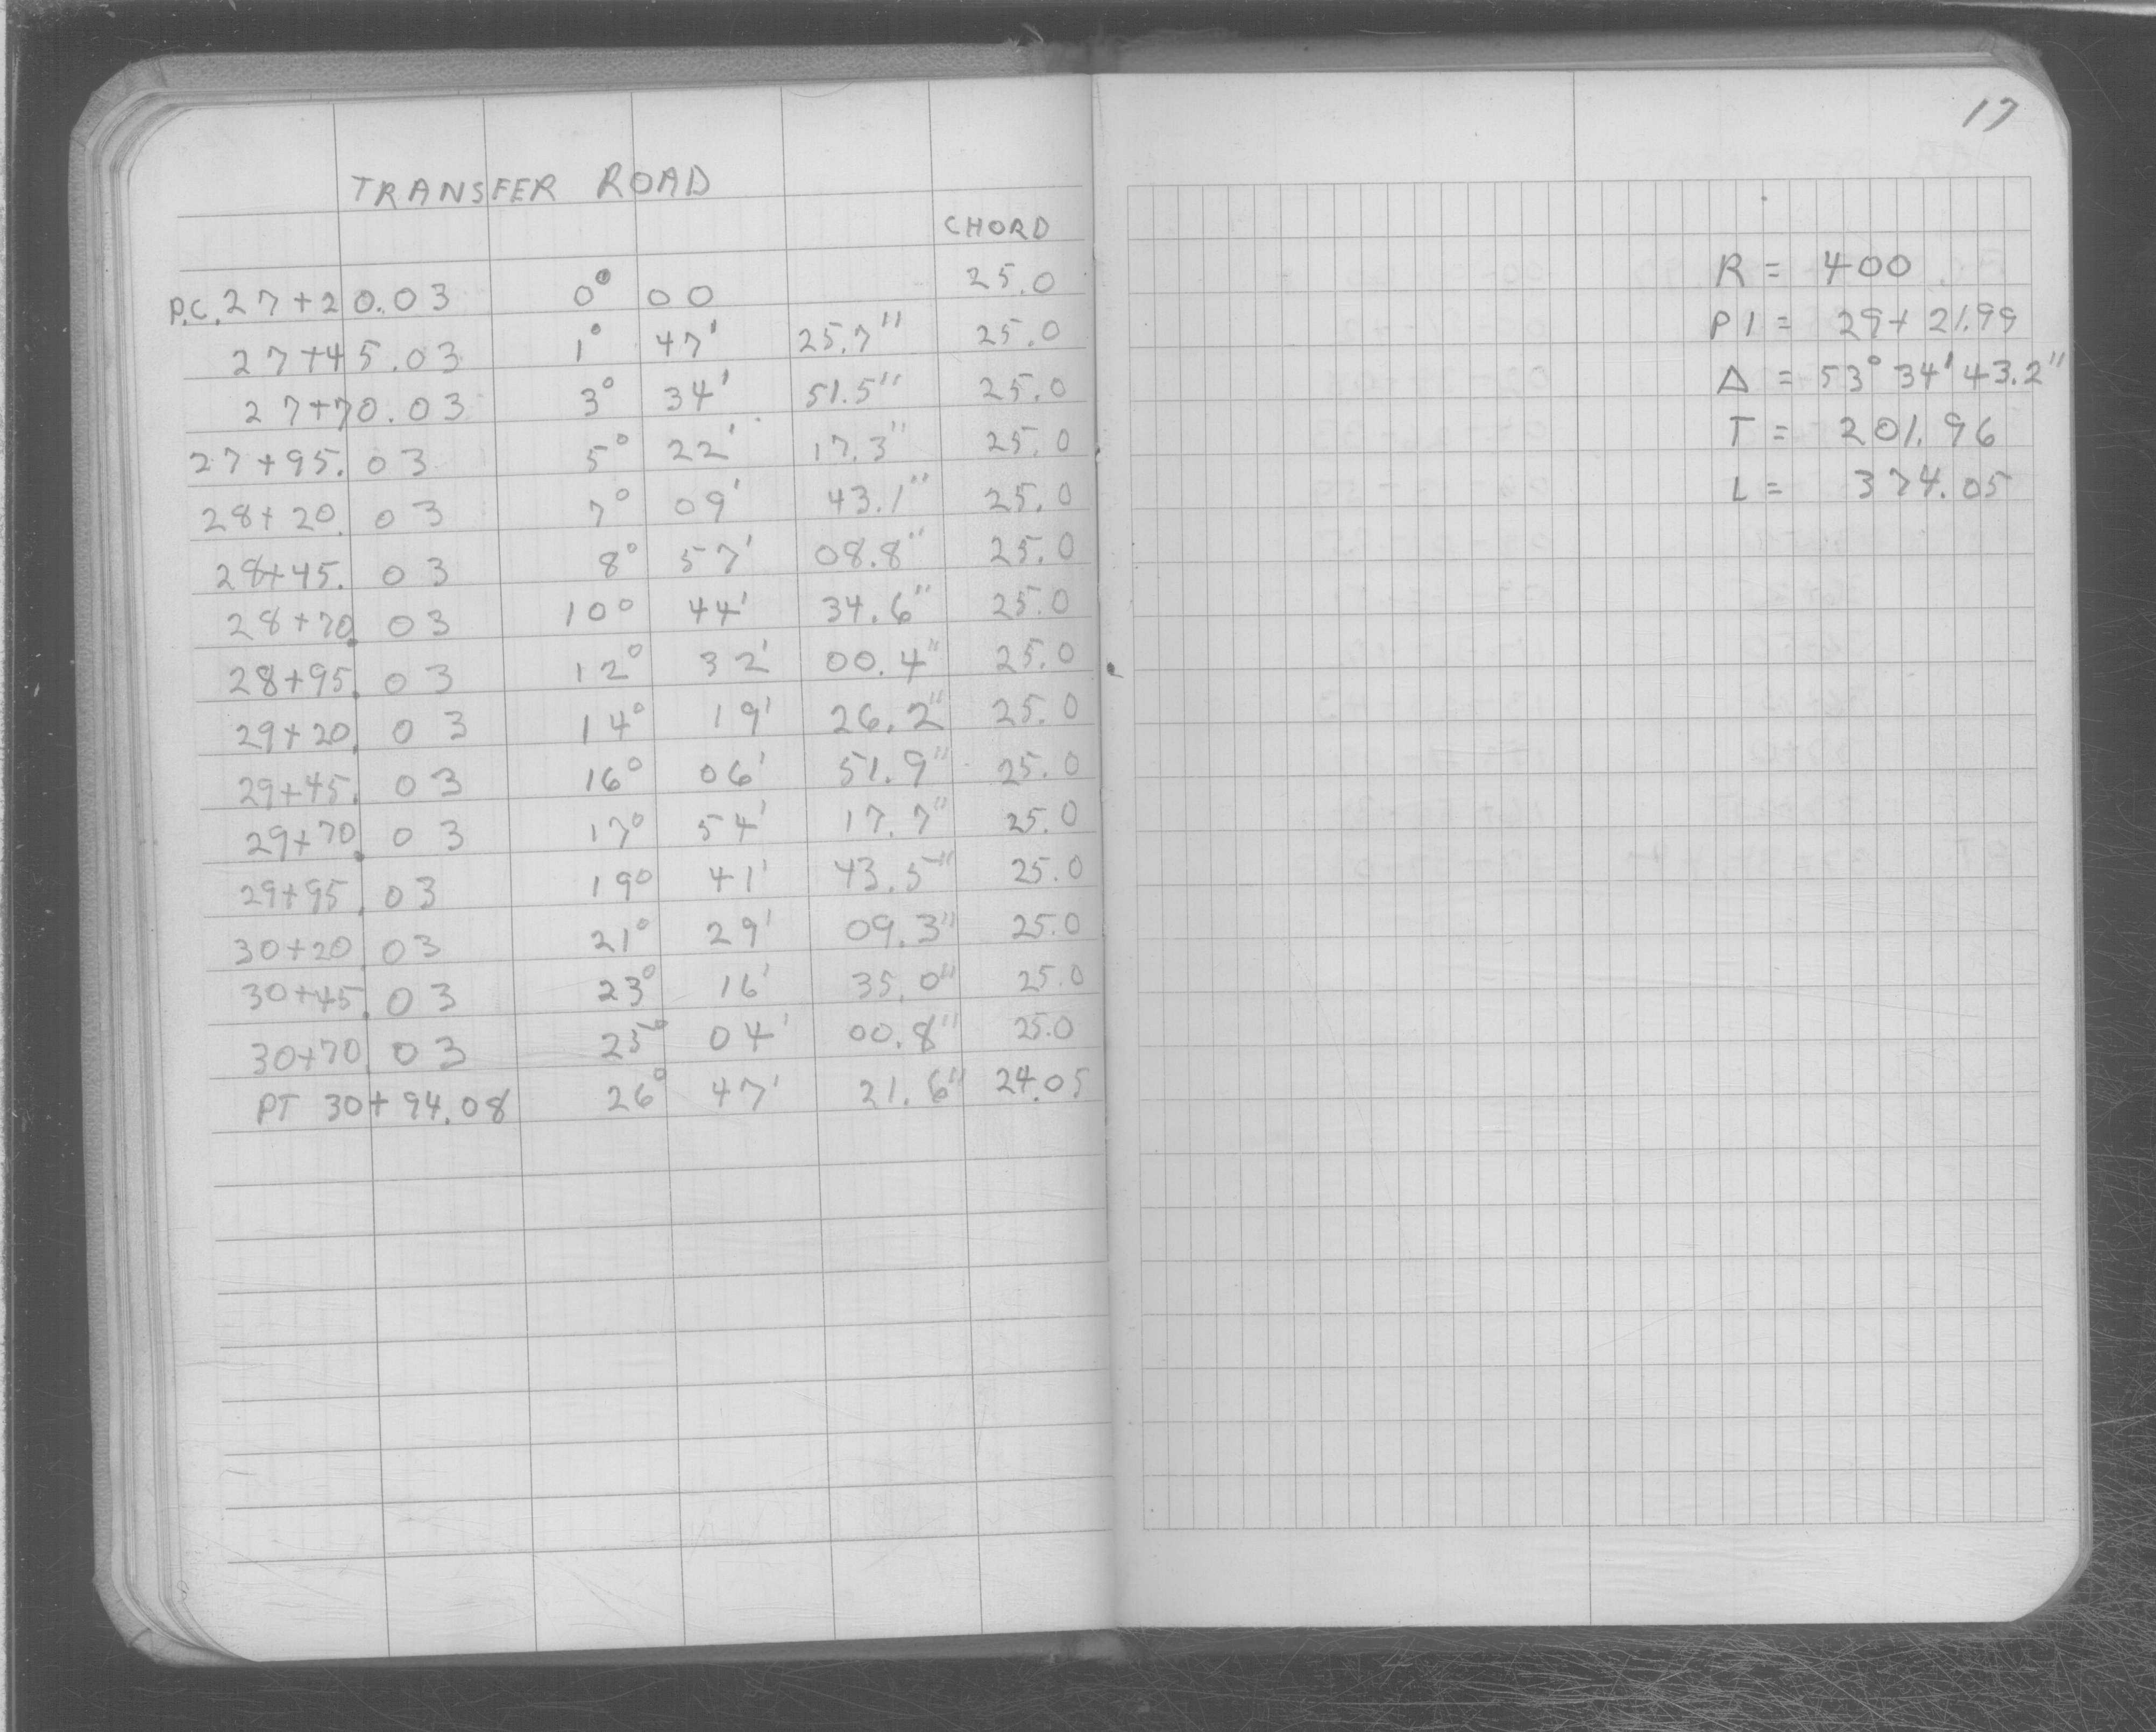 TRANSFER ROAD
CHORD
P.C. 27+20.03 0° 00 25.0
27+45.03 1° 47' 25.7" 25.0
27+70.03 3° 34' 51.5" 25.0
27+95.03 5° 22' 17.3" 25.0
28+20.03 7° 09' 43.1" 25.0
28+45.03 8° 57' 08.8" 25.0
28+70.03 10° 44' 34.6" 25.0
28+95.03 12° 32' 00.4" 25.0
29+20.03 14° 19' 26.2" 25.0
29+45.03 16° 06' 51.9" 25.0
29+70.03 17° 54' 17.7" 25.0
29+95.03 19° 41' 43.5" 25.0
30+20.03 21° 29' 09.3" 25.0
30+45.03 23° 16' 35.0" 25.0
30+70.03 25° 04' 00.8" 25.0
PT 30+94.08 26° 47' 21.6" 24.05
17
R = 400
PI = 29+21.99
Δ = 53° 34' 43.2"
T = 201.96
L = 374.05